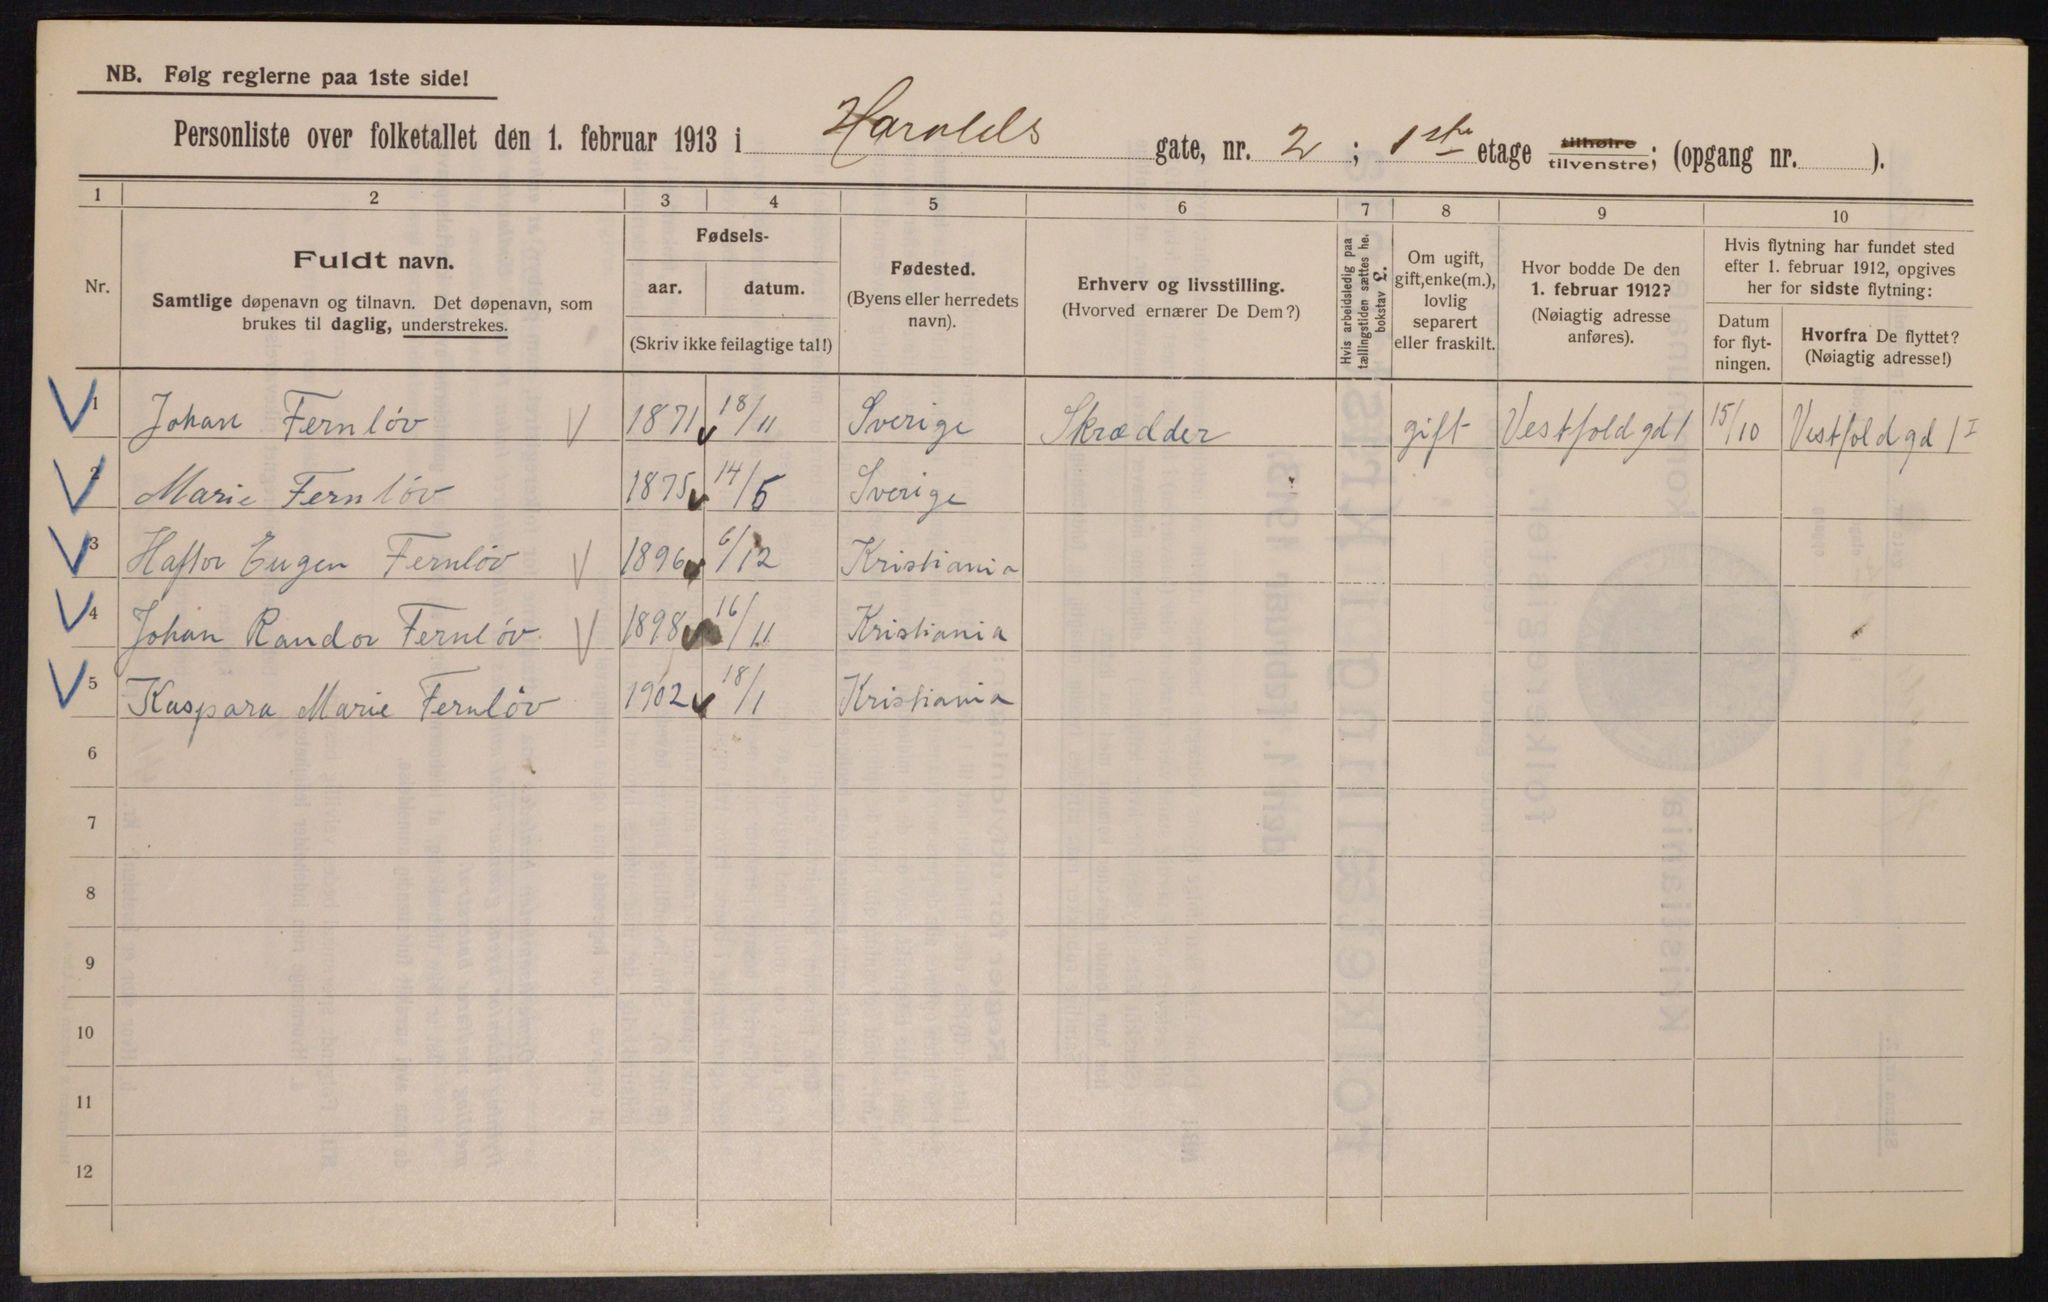 NB. Følg reglerne paa 1ste side!
Personliste over folketallet den 1. februar 1913 i Haralds gate, nr. 2; 1ste etage tilhøire tilvenstre; (opgang nr. ).
1 2 3 4 5 6 7 8 9 10
Nr.
Fuldt navn.
Samtlige døpenavn og tilnavn. Det døpenavn, som
brukes til daglig, understrekes.
Fødsels-
aar. datum.
(Skriv ikke feilagtige tal!)
Fødested.
(Byens eller herredets
navn).
Erhverv og livsstilling.
(Hvorved ernærer De Dem?)
Hvis arbeidsledig paa
tællingstiden sættes he.
bokstav L.
Om ugift,
gift, enke(m.),
lovlig
separert
eller fraskilt.
Hvor bodde De den
1. februar 1912?
(Nøiagtig adresse
anføres).
Hvis flytning har fundet sted
efter 1. februar 1912, opgives
her for sidste flytning:
Datum
for flyt-
ningen.
Hvorfra De flyttet?
(Nøiagtig adresse!)
1 Johan Fernløv 1871 18/11 Sverige Skrædder gift Vestfold gd 1 15/10 Vestfold gd 1 I
2 Marie Fernløv 1875 14/5 Sverige
3 Haftor Eugen Fernløv 1896 6/12 Kristiania
4 Johan Randor Fernløv 1898 16/11 Kristiania
5 Kaspara Marie Fernløv 1902 18/1 Kristiania
6
7
8
9
10
11
12